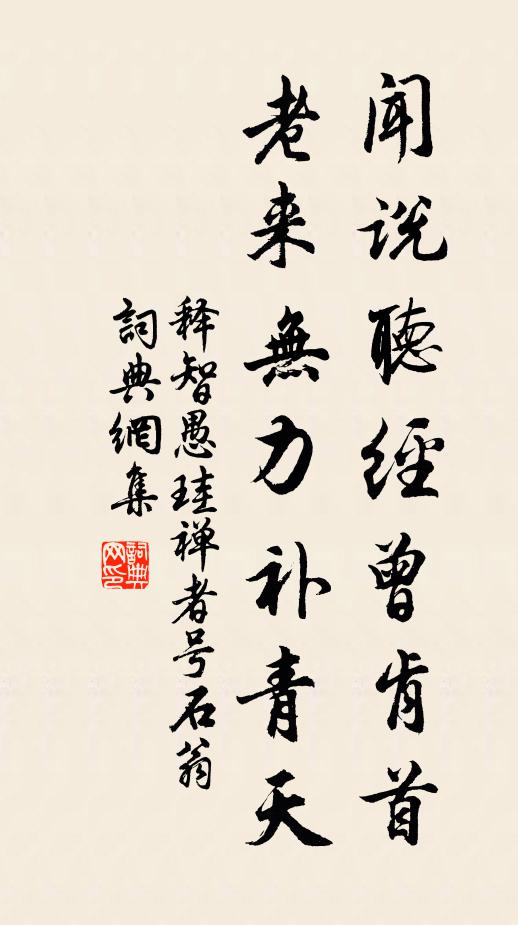 闻说聽經曾肯首
老来無力补青天
释智愚珪禅者号石翁
詞典網集
詞典网印